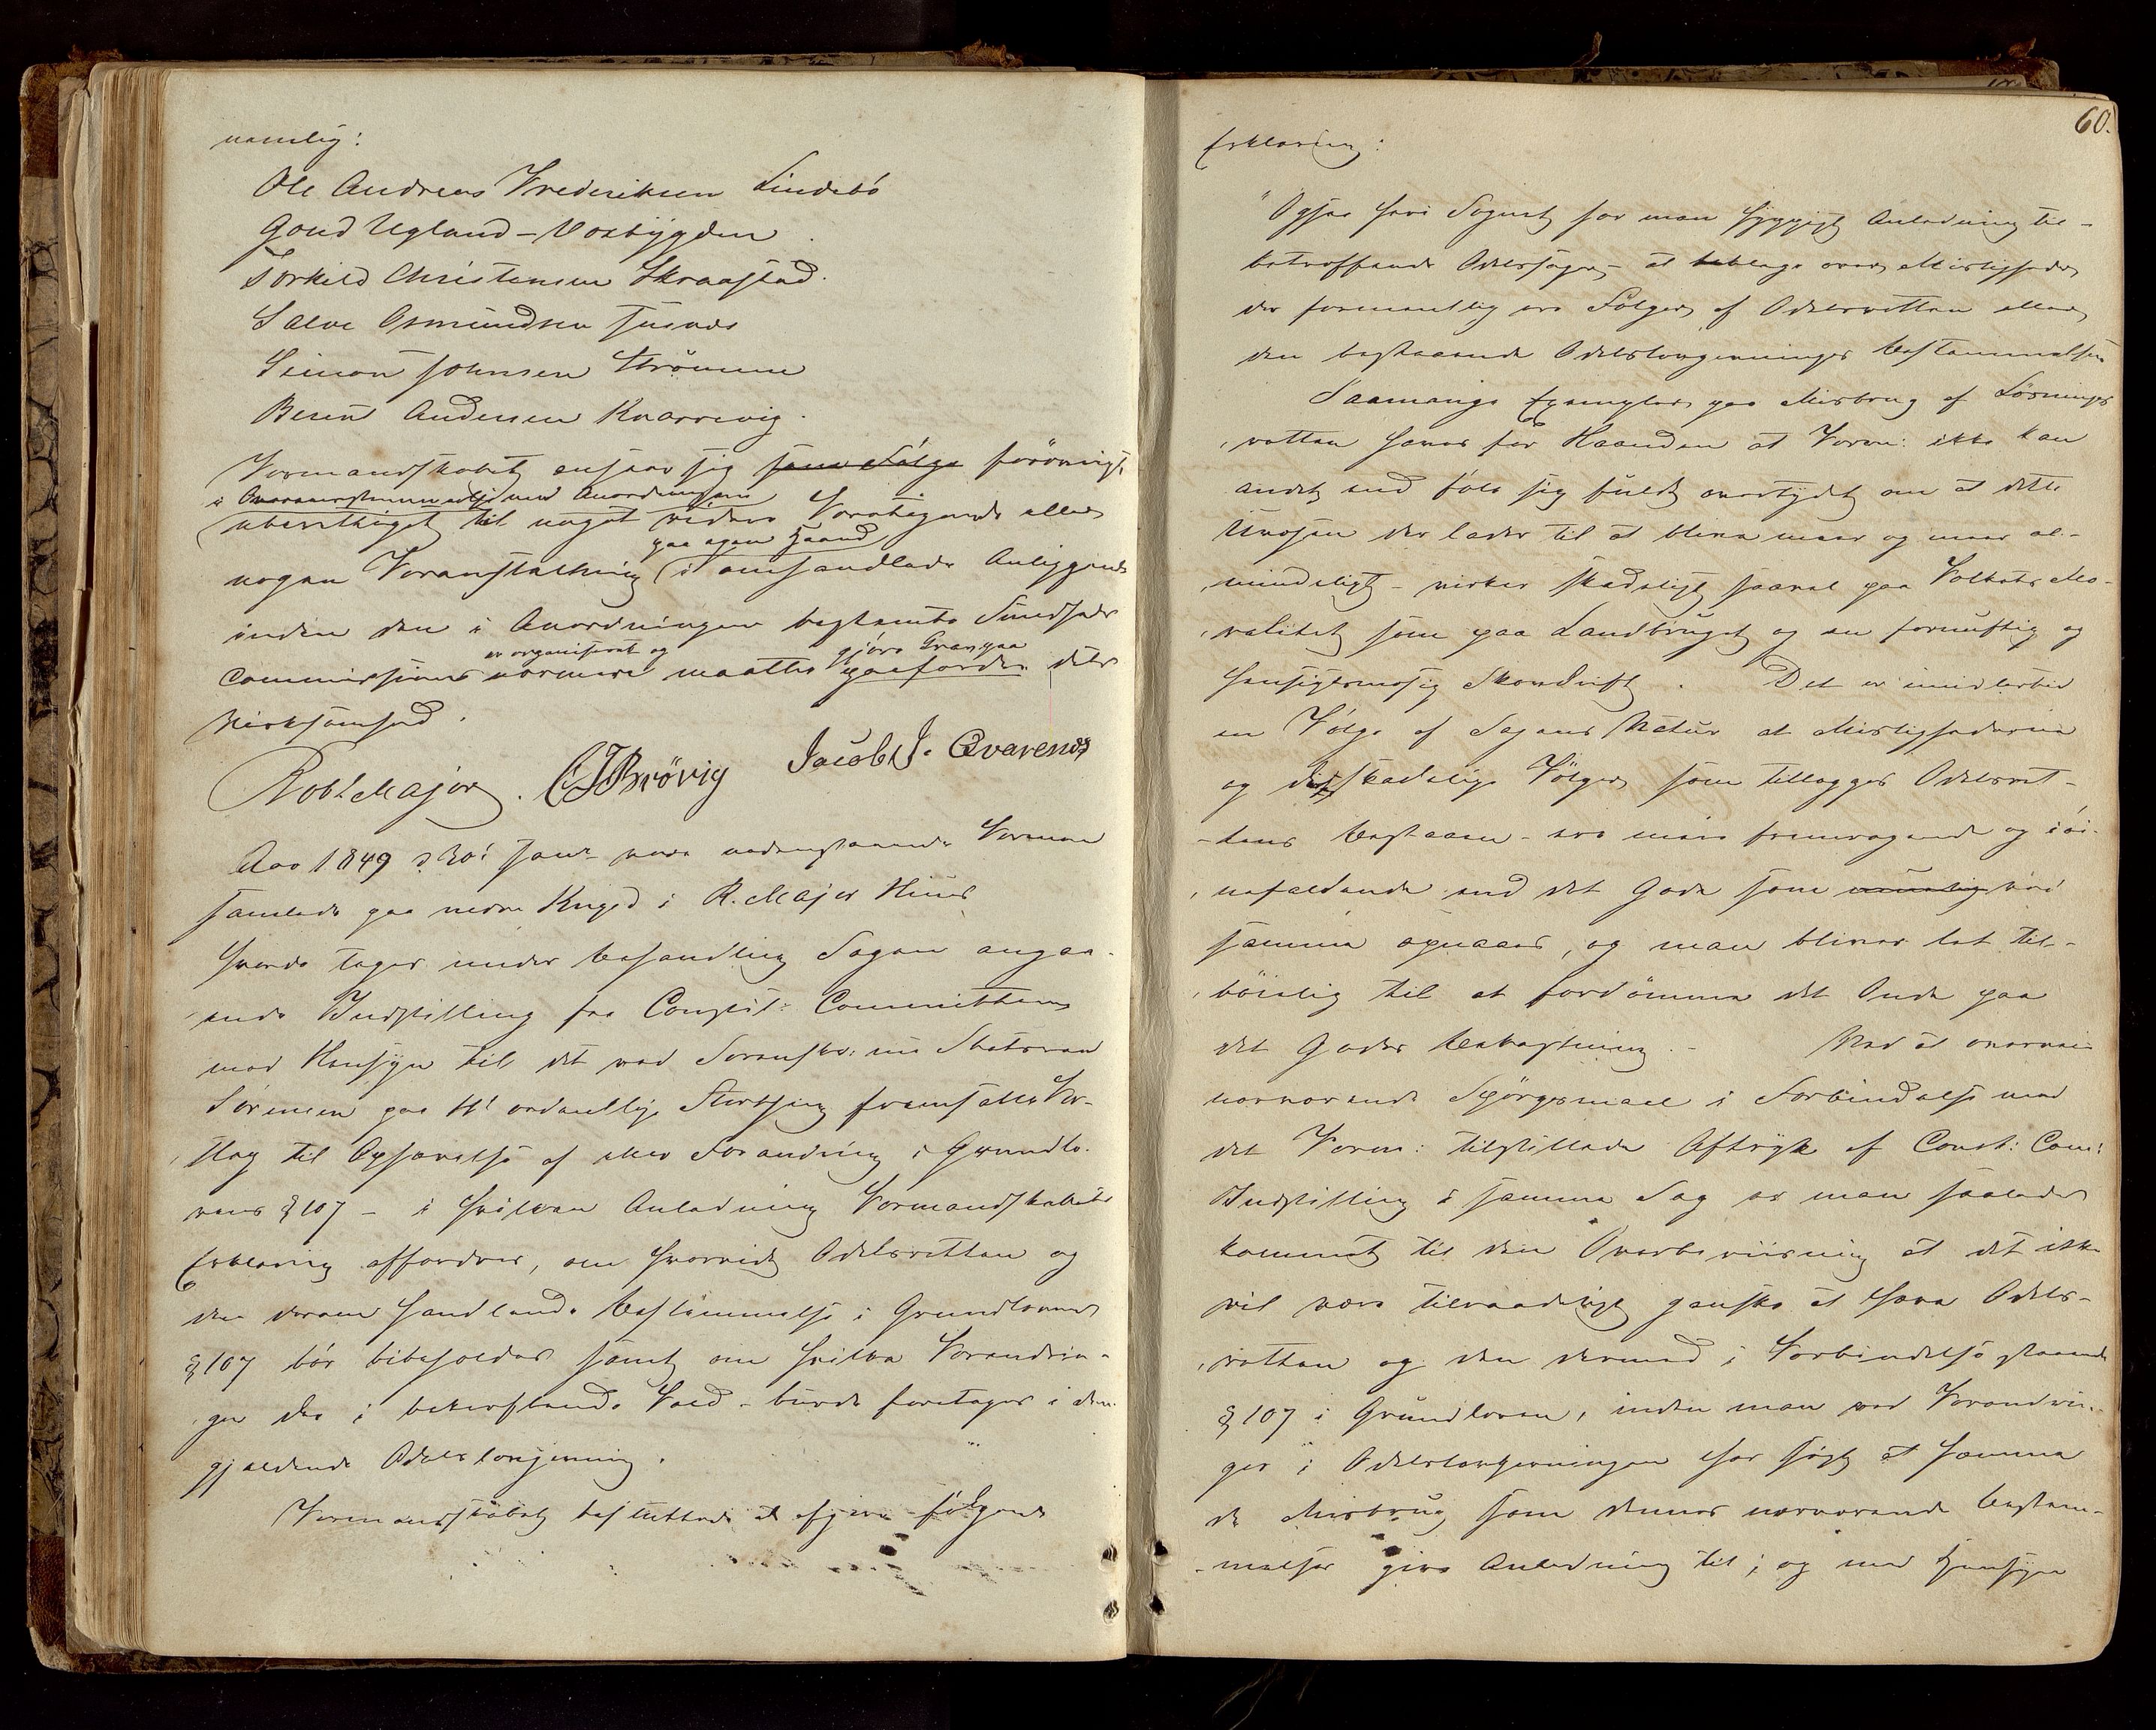 nemlig:
Ole Andreas Frederiksen Lindebö
Goud Ugland - Vosbygden
Torkild Christensen Skraastad
Salve Osmundsen Tusvas
Simon Johnsen Strömme
Berent Andersen Knarrevig
Formandskabet anseer sig som Fölge forövrigt
i Overensstemmelse med Anordningen
uberettiget til noget videre Foretagende eller
paa egen Haand
nogen Foranstaltning i omhandlede Anliggende
inden den i Anordningen bestemte Sundheds
er organiseret og gjöre Krav paa
Commission nærmere maatte paafordre dets
Virksomhed.
Robt Major. CJBrövig Jacob J. Qvarenes
Aar 1849 d 30' Janr vare nedenstaaende Formæn
samlede paa nedre Kuged i R. Majors Huus
hvorda toges under Behandling Sagen angaa-
ende Indstilling fra Constit: Committeen
med Hensyn til det ved Sorenskr: nu Statsraad
Sörensen paa 11te ordentlige Storthing fremsatte For-
slag til Ophævelse af eller Forandring i Grundlo-
vens § 107 - i hvilken Anledning Formandskabets
Erklæring affordres, om hvorvidt Odelsretten og
den derom handlende Bestemmelse i Grundlovens
§ 107 bör bibeholdes samt om hvilke Forandrin-
ger der i bekræftende Fald - burde foretages i den
gjældende Odelslovgivning.
Formandskabet besluttede at afgive fölgende
60.
Erklæring:
"Ogsaa her i Sognet har man hyppigt Anledning til -
betræffende Odelssager - at beklage over Misligheder
der formentlig ere Fölger af Odelsretten eller
den bestaaende Odelslovgivnings Bestemmelser
Saamange Exempler paa Misbrug af Lösnings
retten haves for Haanden at Form: ikke kan
andet end föle sig fuldt overtydet om at dette
Uvæsen der lader til at blive meer og meer al-
mindeligt - virker skadeligt saavel paa Folkets Mo-
ralitet som paa Landbruget og en fornuftig og
hensigtsmæsig Skovdrift. Det er imidlertid
en Fölge af Sagens Natur at Mislighederne
og de skadelige Fölger som tillægges Odelsret-
tens Bestaaen - ere mere fremragende og iöi-
nefaldende end det Gode som ved
samme opnaaes, og man bliver let til-
böielig til at fordömme det Onde paa
det Godes Bekostning. - Ved at overveie
nærværende Spörgsmaal i Forbindelse med
det Form: tilstillede Aftryk af Const: Com:
Indstilling i samme Sag er man saaledes
kommet til den Overbeviisning at det ikke
vil være tilraadeligt ganske at hæve Odels-
retten og den dermed i Forbindelse staaende
§ 107 i Grundloven, inden man ved Forandrin-
ger i Odelslovgivningen har sögt at hæmme
de Misbrug som dennes nærværende Bestem-
melser give Anledning til; og med Hensyn